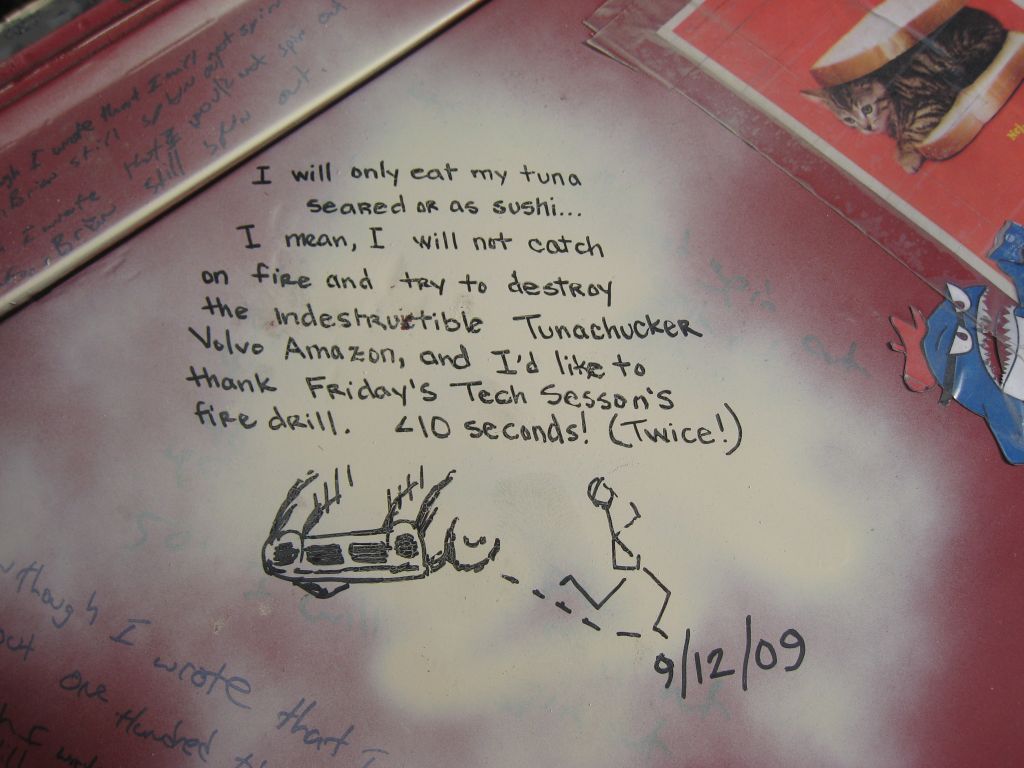 I will only eat my tuna
seared or as sushi...
I mean, I will not catch
on fire and try to destroy
the indestructible Tunachucker
Volvo Amazon, and I'd like to
thank Friday's Tech Sesson's
fire drill. <10 seconds! (Twice!)
9/12/09
I wrote that I will not spin
Brian still spun out
I wrote that I would not spin out
Brian still spun out.
though I wrote that I
out one Hundred
I